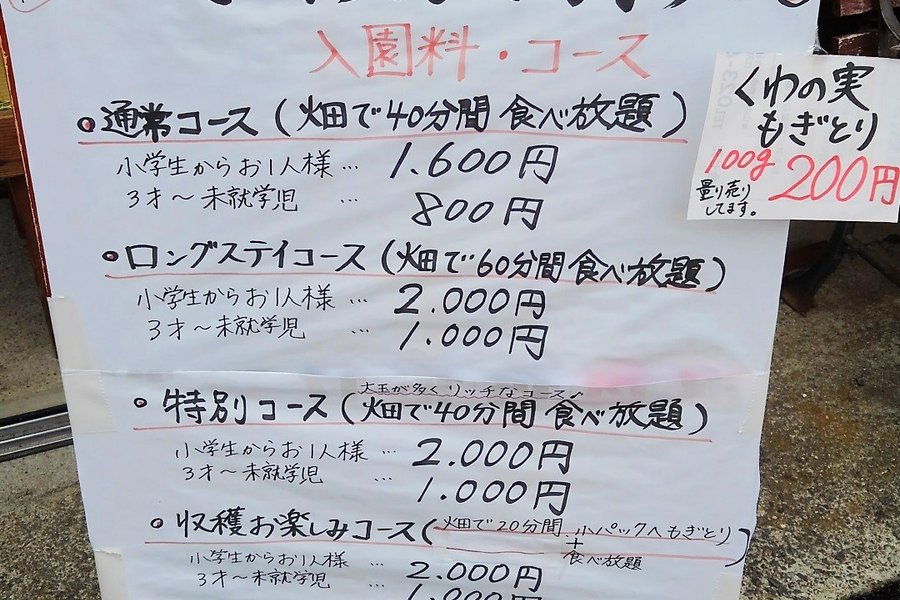 入園料・コース
・通常コース(畑で40分間食べ放題)
小学生からお1人様… 1.600円
3才〜未就学児 … 800円
・ロングステイコース(畑で60分間食べ放題)
小学生からお1人様… 2.000円
3才〜未就学児 … 1.000円
大玉が多くリッチなコース♪
・特別コース(畑で40分間食べ放題)
小学生からお1人様… 2.000円
3才〜未就学児 … 1.000円
・収穫お楽しみコース(畑で20分間食べ放題+小パックへもぎとり)
小学生からお1人様… 2.000円
3才〜未就学児 …
くわの実
もぎとり
100g 200円
量り売り
してます。